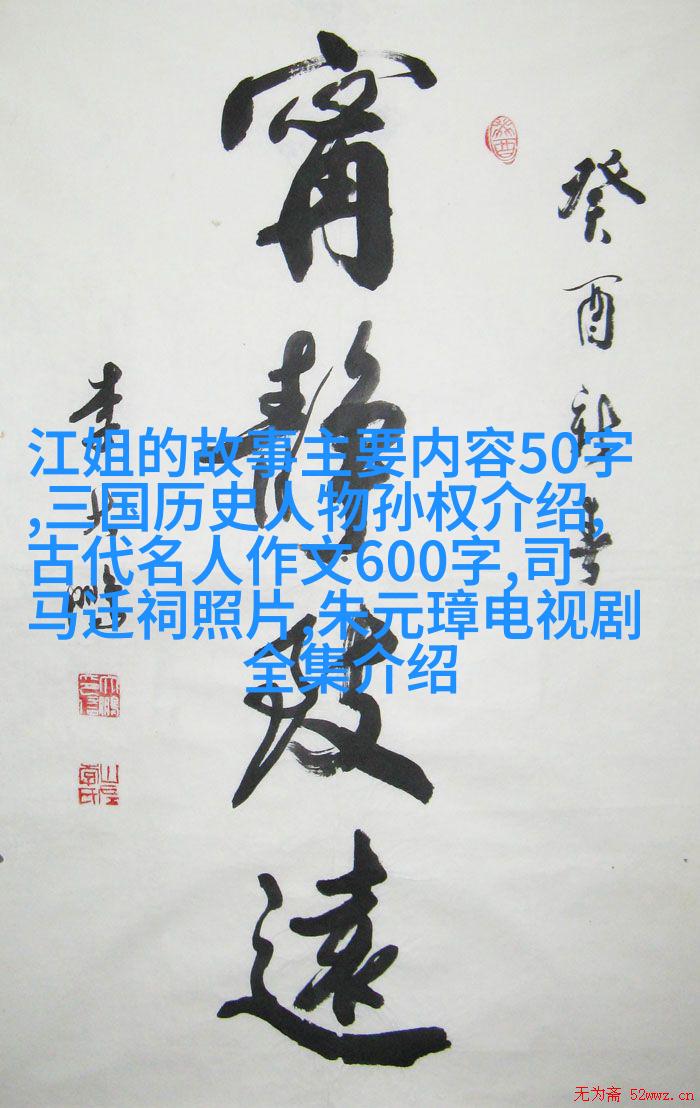 癸酉新春
寧靜致遠
李大鹏
江姐的故事主要内容50字
,三国历史人物孙权介绍,
古代名人作文600字,司
马迁祠照片,朱元璋电视剧
全集介绍
无为斋 52wwz.cn